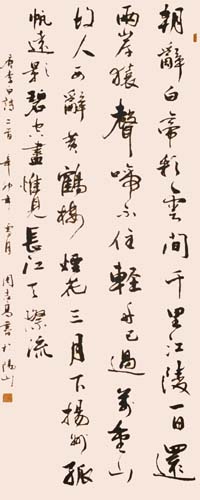 朝辭白帝彩雲間千里江陵一日還
兩岸猿聲啼不住輕舟已過萬重山
故人西辭黃鶴樓煙花三月下揚州孤
帆遠影碧空盡惟見長江天際流
唐李白詩二首辛卯年 月周 書於陽山